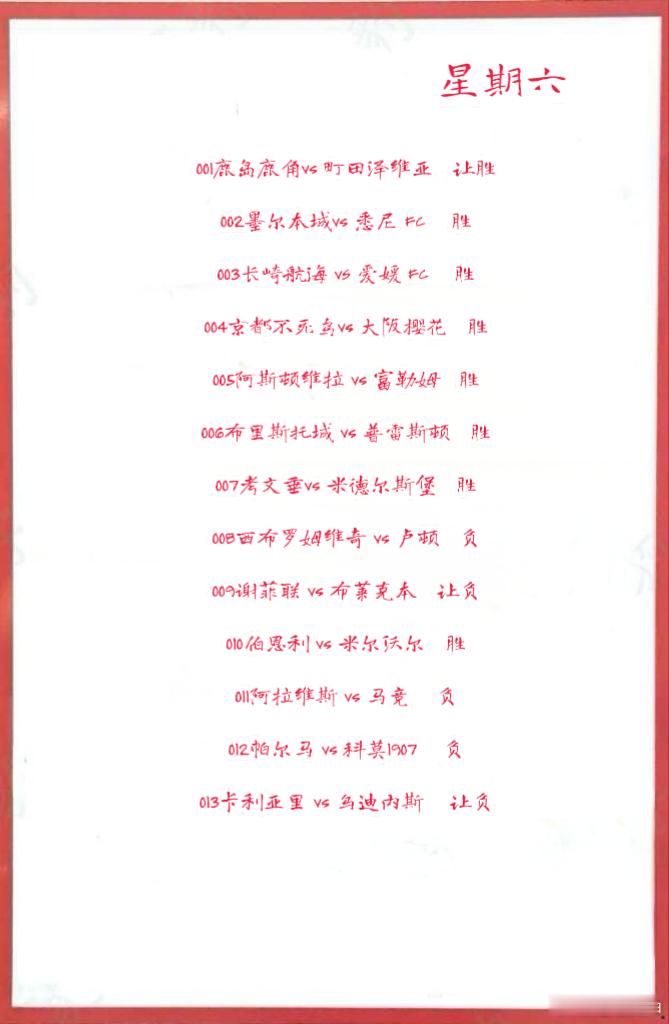 星期六
001鹿岛鹿角vs 町田泽维亚 让胜
002墨尔本城vs 悉尼 FC 胜
003长崎航海 vs 爱媛 FC 胜
004京都不死鸟vs 大阪樱花 胜
005阿斯顿维拉 vs 富勒姆 胜
006布里斯托城 vs 普雷斯顿 胜
007考文垂vs 米德尔斯堡 胜
008西布罗姆维奇 vs 卢顿 负
009谢菲联 vs 布莱克本 让负
010伯恩利 vs 米尔沃尔 胜
011阿拉维斯 vs 马竞 负
012帕尔马 vs 科莫1907 负
013卡利亚里 vs 乌迪内斯 让负